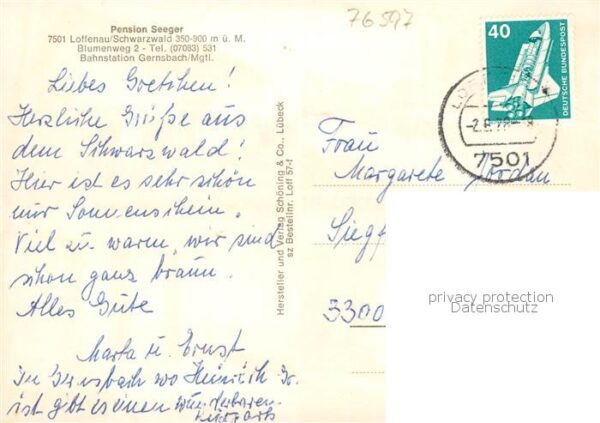 76597
Pension Seeger
7501 Loffenau/Schwarzwald 350-900 m ü. M.
Blumenweg 2 - Tel. (07083) 531
Bahnstation Gernsbach/Mgtl.
Liebes Gretchen!
Herzliche Grüße aus
dem Schwarzwald!
Hier ist es sehr schön
nur Sonnenschein.
Viel zu warm, wir sind
schon ganz braun.
Alles Gute
Marta u. Ernst
In Gernsbach wo Heinrich
ist gibt es einen wunderbaren
Kurpark
Hersteller und Verlag Schöning & Co., Lübeck
sz Bestellnr. Loff 57-f
40
DEUTSCHE BUNDESPOST
7501
Frau
Margarete Jordan
Siegf
3300
privacy protection
Datenschutz